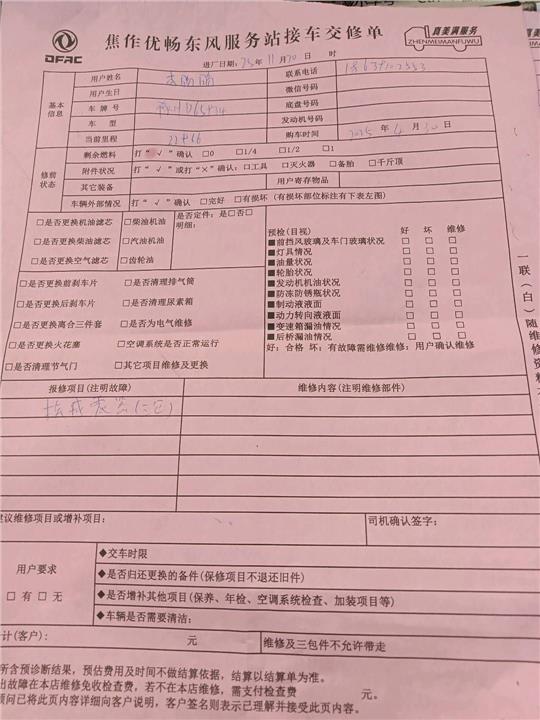 DFAC
焦作优畅东风服务站接车交修单
真美满服务
ZHENMEIMANFUWU
进厂日期：25年11月20日 时
基本信息
用户姓名
联系电话
用户生日
微信号码
车牌号
底盘号码
车型
发动机号码
当前里程
购车时间 2025年4月30日
修前状态
剩余燃料 打“√”确认 □0 □1/4 □1/2 □1
附件状况 打“√”或打“×”确认：□工具 □灭火器 □备胎 □千斤顶
其它装备
用户寄存物品
车辆外部情况 打“√”确认 □完好 □有损坏（有损坏部位标注有下表左图）
□是否更换机油滤芯 □柴油机油
□是否更换柴油滤芯 □汽油机油
□是否更换空气滤芯 □齿轮油
是否定件：是□否□
明细：
□是否更换前刹车片 □是否清理排气筒
□是否更换后刹车片 □是否清理尿素箱
□是否更换离合三件套 □是否为电气维修
□是否更换火花塞 □空调系统是否正常运行
□是否清理节气门 □其它项目维修及更换
预检(目视) 好 坏 维修
■前挡风玻璃及车门玻璃状况 □ □ □
■灯具情况 □ □ □
■油量状况 □ □ □
■轮胎状况 □ □ □
■发动机机油状况 □ □ □
■防冻防锈瓶状况 □ □ □
■制动液液面 □ □ □
■动力转向液液面 □ □ □
■变速箱漏油情况 □ □ □
■后桥漏油情况 □ □ □
好：合格 坏：有故障需维修维修：用户确认维修
一联（白）随维修资料
报修项目(注明故障)
维修内容(注明维修部件)
建议维修项目或增补项目：
司机确认签字：
用户要求
□有□无
◆交车时限
◆是否归还更换的备件(保修项目不退还旧件)
◆是否增补其他项目(保养、年检、空调系统检查、加装项目等)
◆车辆是否需要清洁：
计(客户)： 元
维修及三包件不允许带走
所含预诊断结果，预估费用及时间不做结算依据，结算以结算单为准。
出故障在本店维修免收检查费，若不在本店维修，需支付检查费 元。
顾问已将此页内容详细向客户说明，客户签名则表示已理解并接受此页内容。